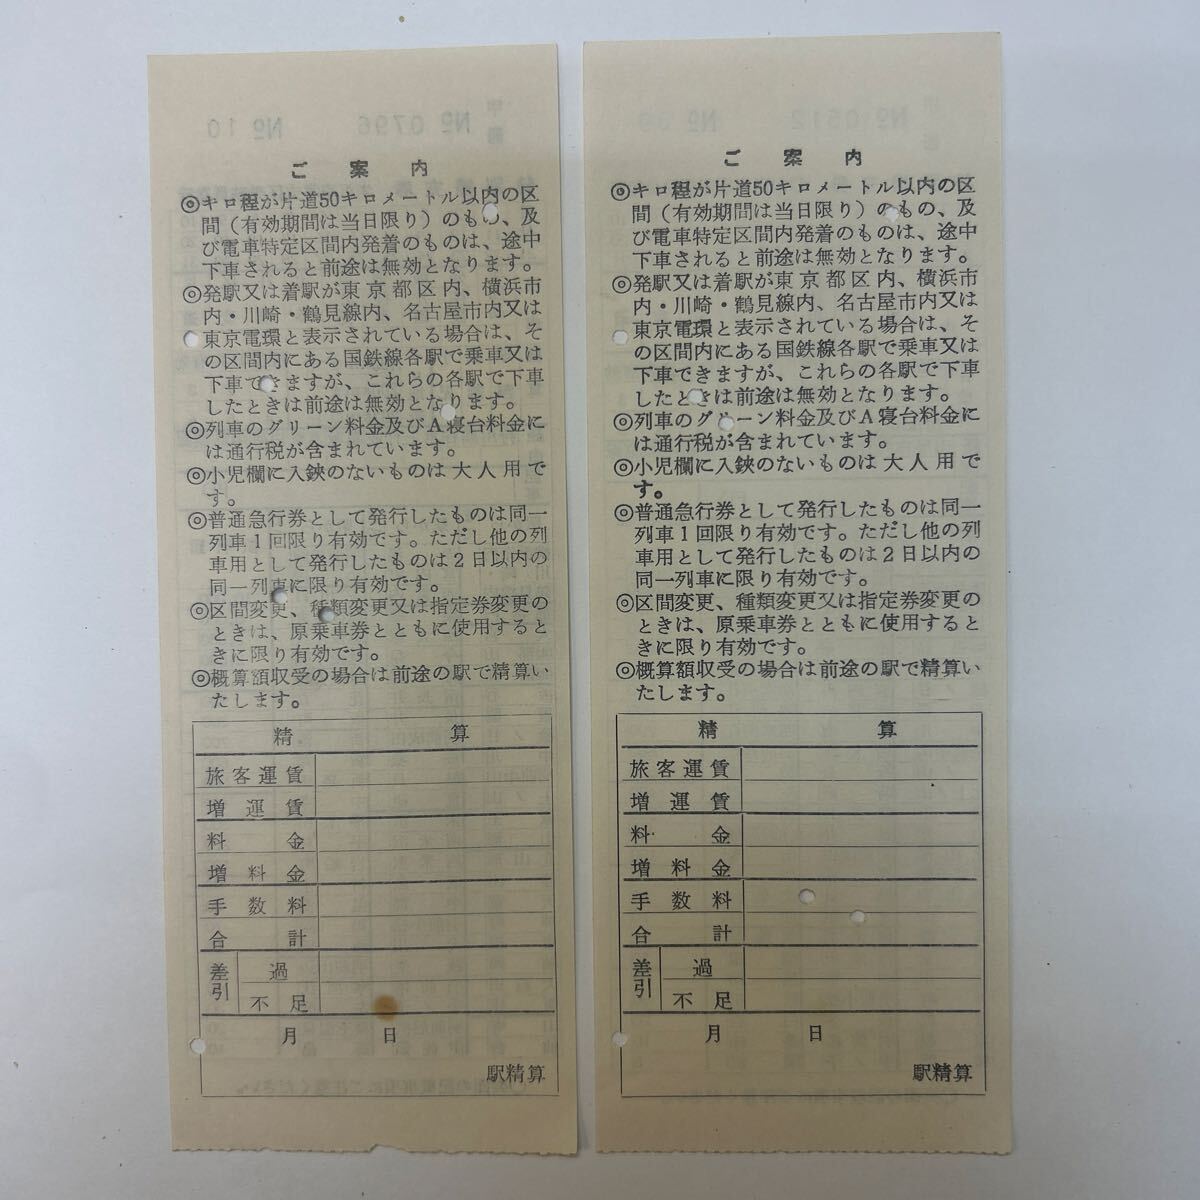 ご案内
◎キロ程が片道50キロメートル以内の区
間(有効期間は当日限り)のもの、及
び電車特定区間内発着のものは、途中
下車されると前途は無効となります。
◎発駅又は着駅が東京都区内、横浜市
内・川崎・鶴見線内、名古屋市内又は
東京電環と表示されている場合は、そ
の区間内にある国鉄線各駅で乗車又は
下車できますが、これらの各駅で下車
したときは前途は無効となります。
◎列車のグリーン料金及びA寝台料金に
は通行税が含まれています。
◎小児欄に入鋏のないものは大人用で
す。
◎普通急行券として発行したものは同一
列車1回限り有効です。ただし他の列
車用として発行したものは2日以内の
同一列車に限り有効です。
◎区間変更、種類変更又は指定券変更の
ときは、原乗車券とともに使用すると
きに限り有効です。
◎概算額収受の場合は前途の駅で精算い
たします。
精算
旅客運賃
増運賃
料金
増料金
手数料
合計
差引
過
不足
月日
駅精算
ご案内
◎キロ程が片道50キロメートル以内の区
間(有効期間は当日限り)のもの、及
び電車特定区間内発着のものは、途中
下車されると前途は無効となります。
◎発駅又は着駅が東京都区内、横浜市
内・川崎・鶴見線内、名古屋市内又は
東京電環と表示されている場合は、そ
の区間内にある国鉄線各駅で乗車又は
下車できますが、これらの各駅で下車
したときは前途は無効となります。
◎列車のグリーン料金及びA寝台料金に
は通行税が含まれています。
◎小児欄に入鋏のないものは大人用で
す。
◎普通急行券として発行したものは同一
列車1回限り有効です。ただし他の列
車用として発行したものは2日以内の
同一列車に限り有効です。
◎区間変更、種類変更又は指定券変更の
ときは、原乗車券とともに使用すると
きに限り有効です。
◎概算額収受の場合は前途の駅で精算い
たします。
精算
旅客運賃
増運賃
料金
増料金
手数料
合計
差引
過
不足
月日
駅精算